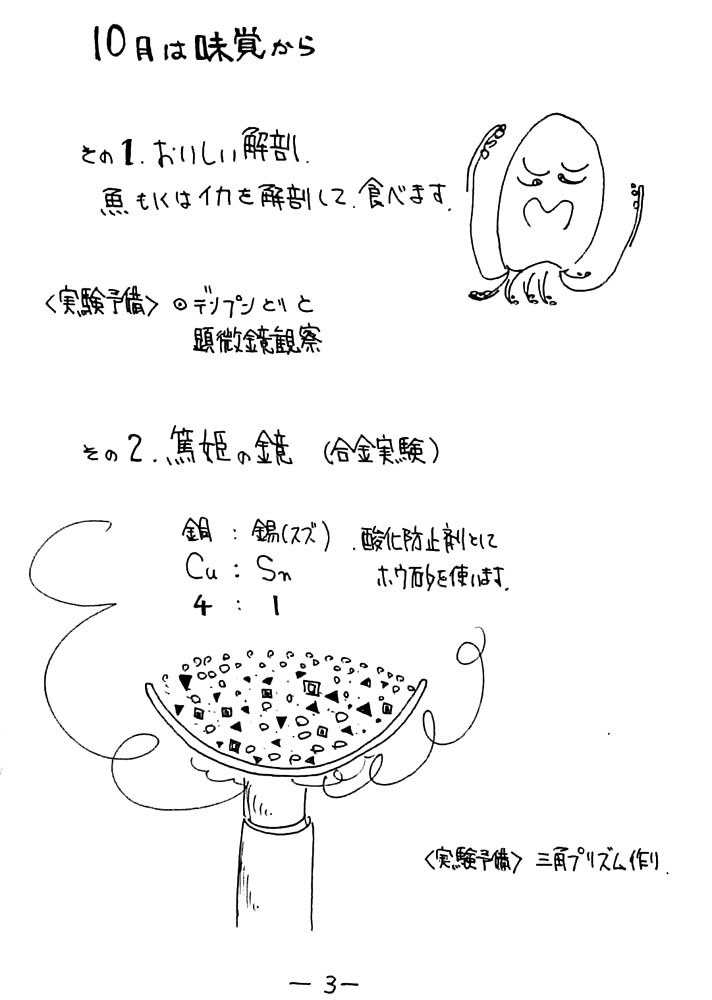 10月は味覚から
その1.おいしい解剖.
魚もくはイカを解剖して.食べます.
〈実験予備〉 ◎デンプンとりと
顕微鏡観察
その2.篤姫の鏡 (合金実験)
銅:錫(スズ) .酸化防止剤として
Cu:Sn ホウ砂を使います.
4:1
〈実験予備〉 三角プリズム作り.
-3-